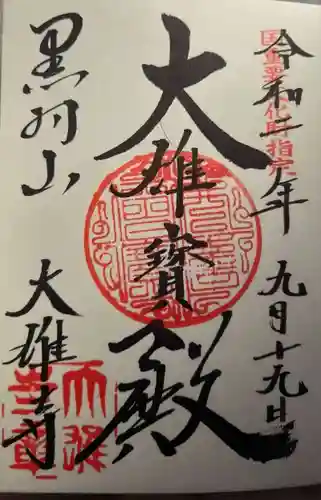 国重要文化財指定
令和二年 九月十九日
大雄寶殿
黒羽山 大雄寺